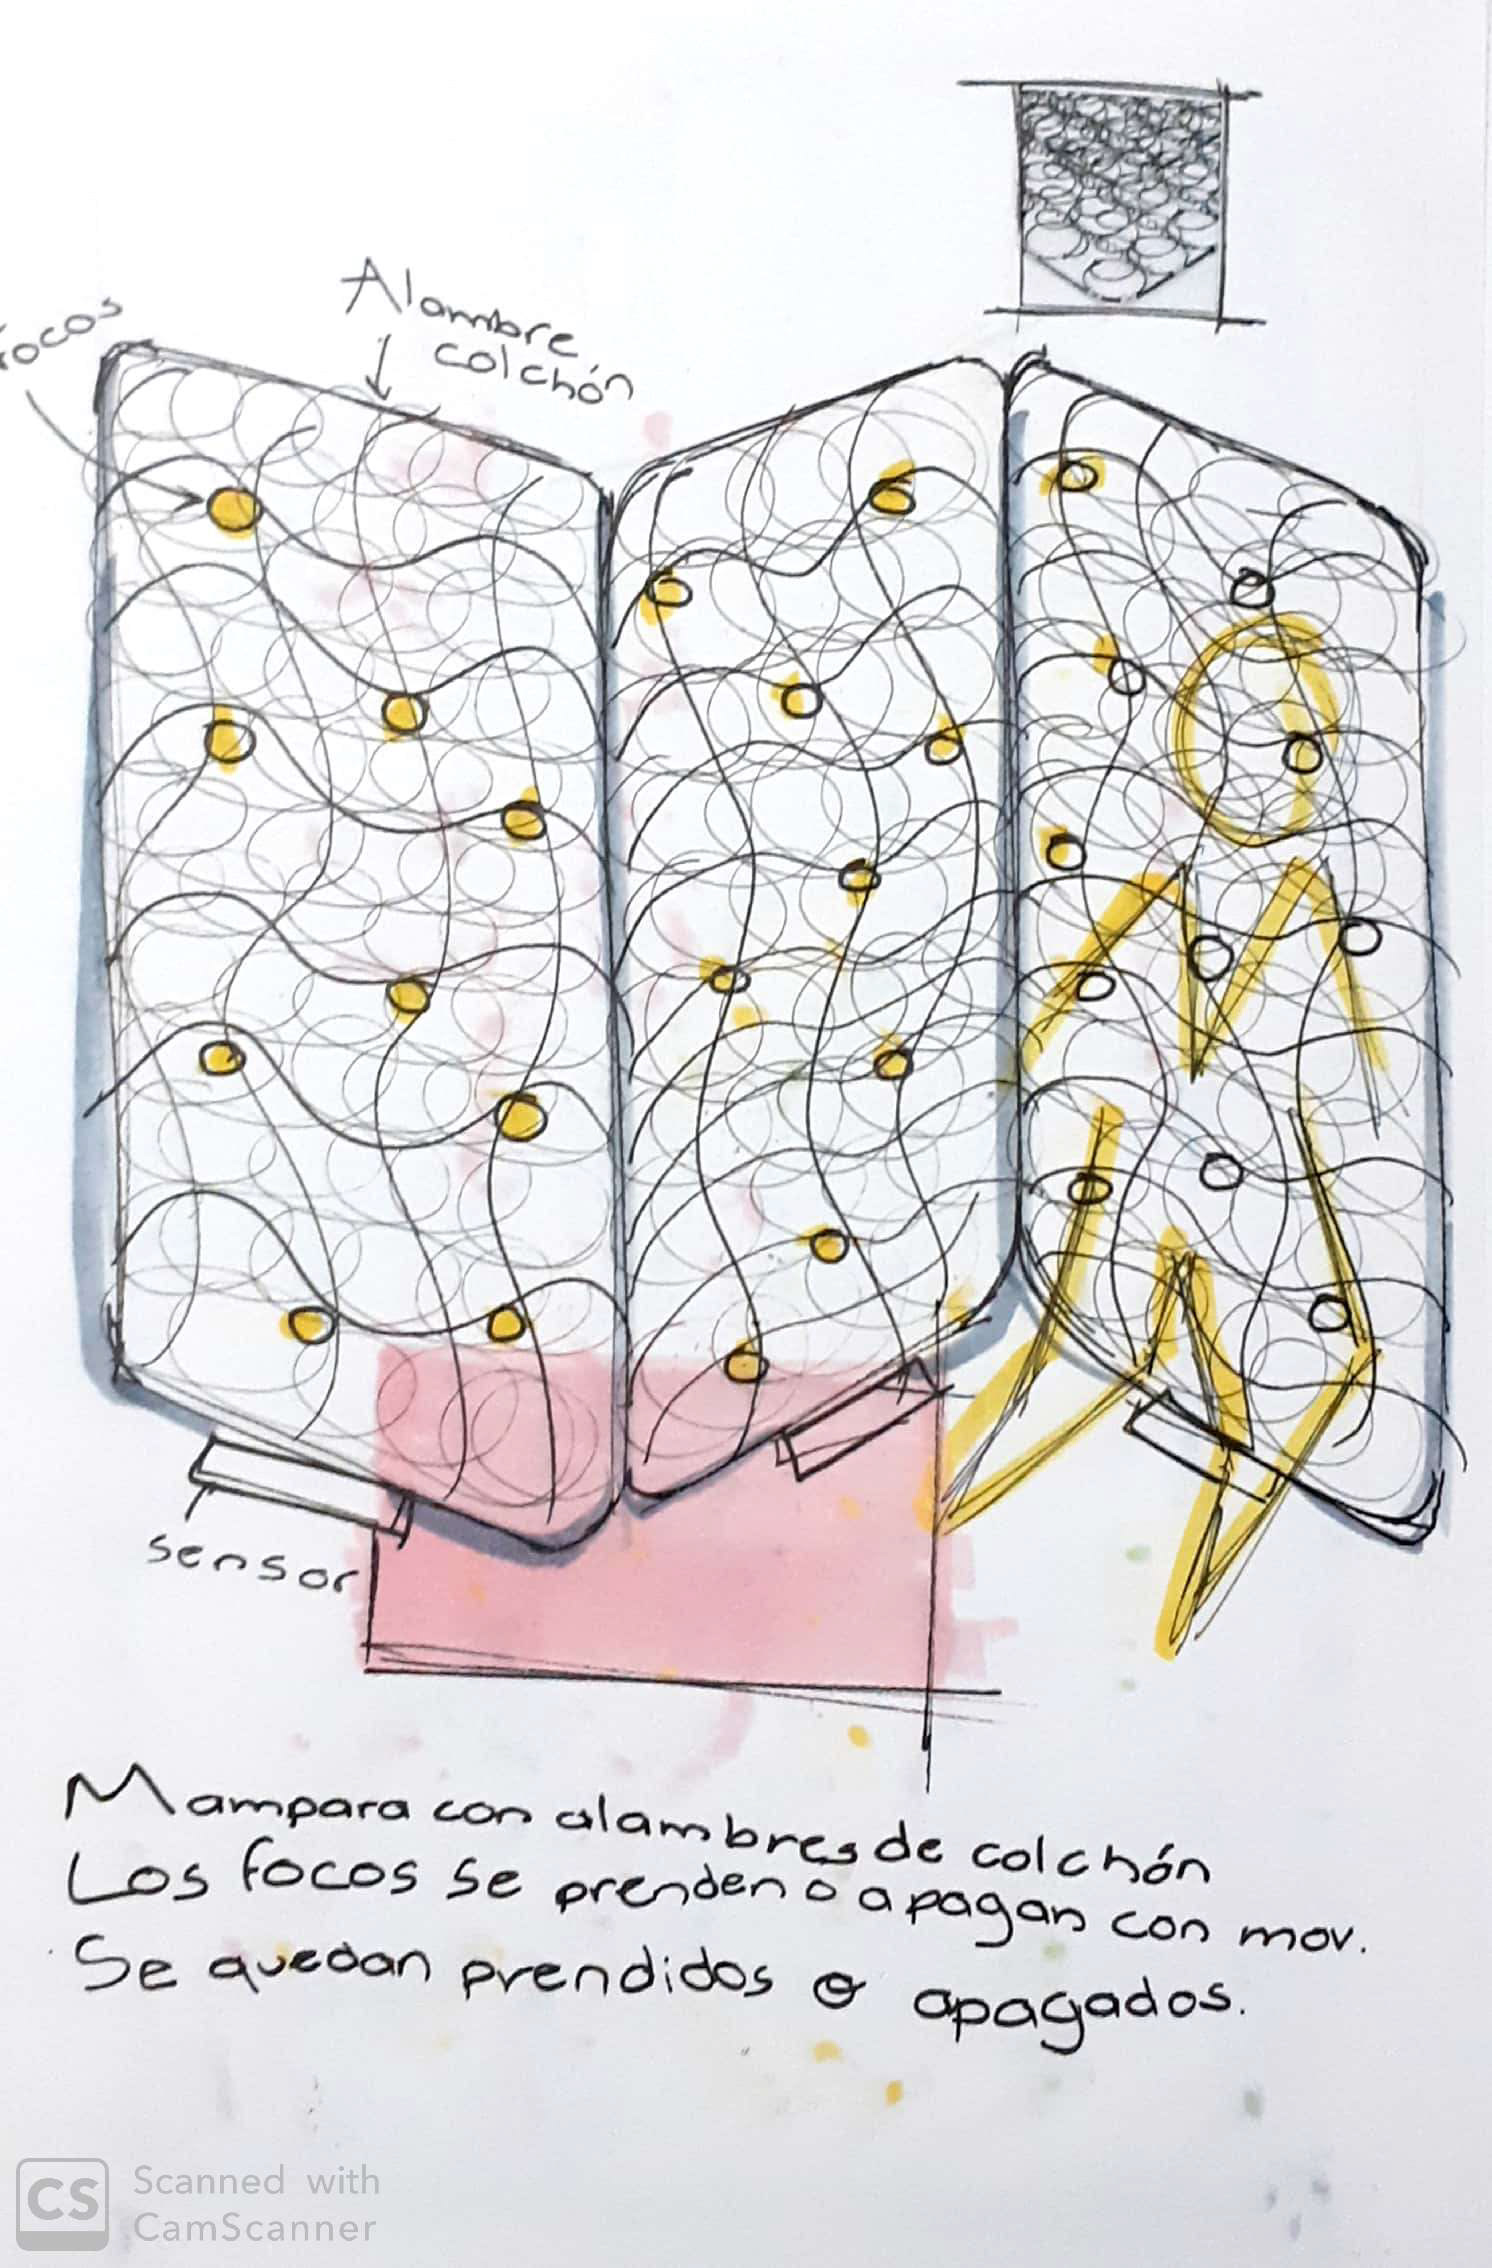 Alambre
colchón
focos
sensor
Mampara con alambres de colchón
Los focos se prenden o apagan con mov.
Se quedan prendidos o apagados.
CS
Scanned with
CamScanner